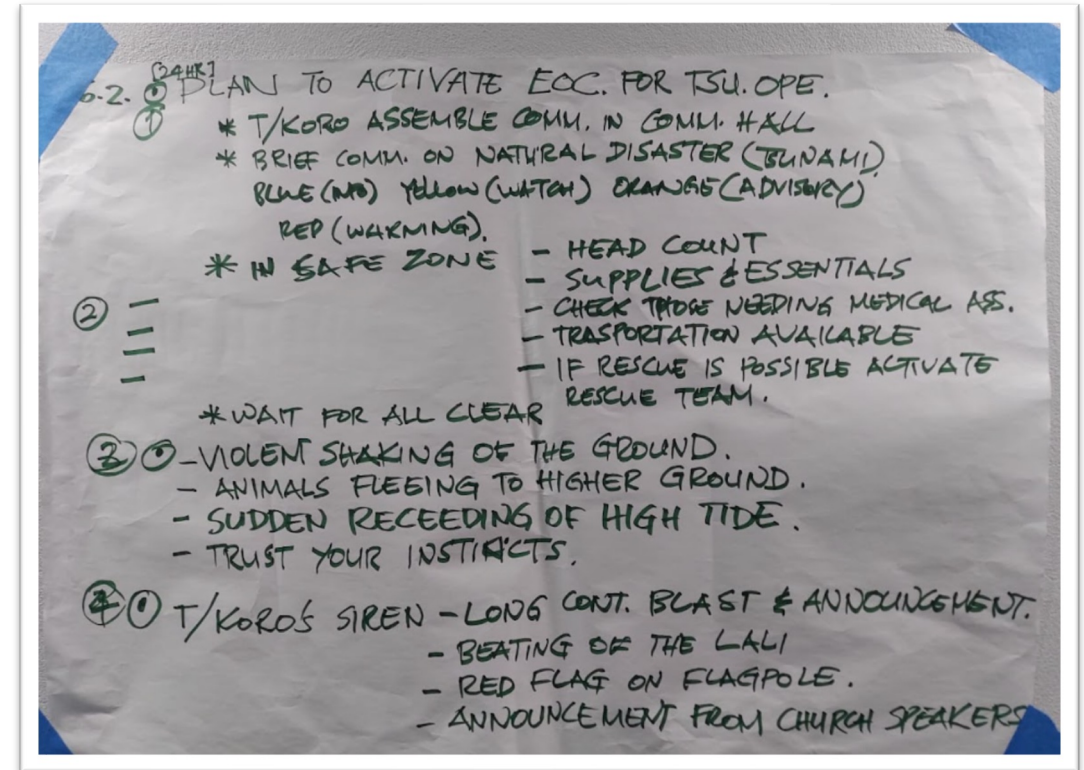 [24HR]
5.2. PLAN TO ACTIVATE EOC. FOR TSU. OPE.
① * T/KORO ASSEMBLE COMM. IN COMM. HALL
* BRIEF COMM. ON NATURAL DISASTER (TSUNAMI)
BLUE (INFO) YELLOW (WATCH) ORANGE (ADVISORY)
RED (WARNING).
* IN SAFE ZONE - HEAD COUNT
- SUPPLIES & ESSENTIALS
② - - CHECK THOSE NEEDING MEDICAL ASS.
- - TRASPORTATION AVAILABLE
- - IF RESCUE IS POSSIBLE ACTIVATE
- RESCUE TEAM.
* WAIT FOR ALL CLEAR
③ - VIOLENT SHAKING OF THE GROUND.
- ANIMALS FLEEING TO HIGHER GROUND.
- SUDDEN RECEEDING OF HIGH TIDE.
- TRUST YOUR INSTINCTS.
④ T/KORO'S SIREN - LONG CONT. BLAST & ANNOUNCEMENT.
- BEATING OF THE LALI
- RED FLAG ON FLAGPOLE.
- ANNOUNCEMENT FROM CHURCH SPEAKERS